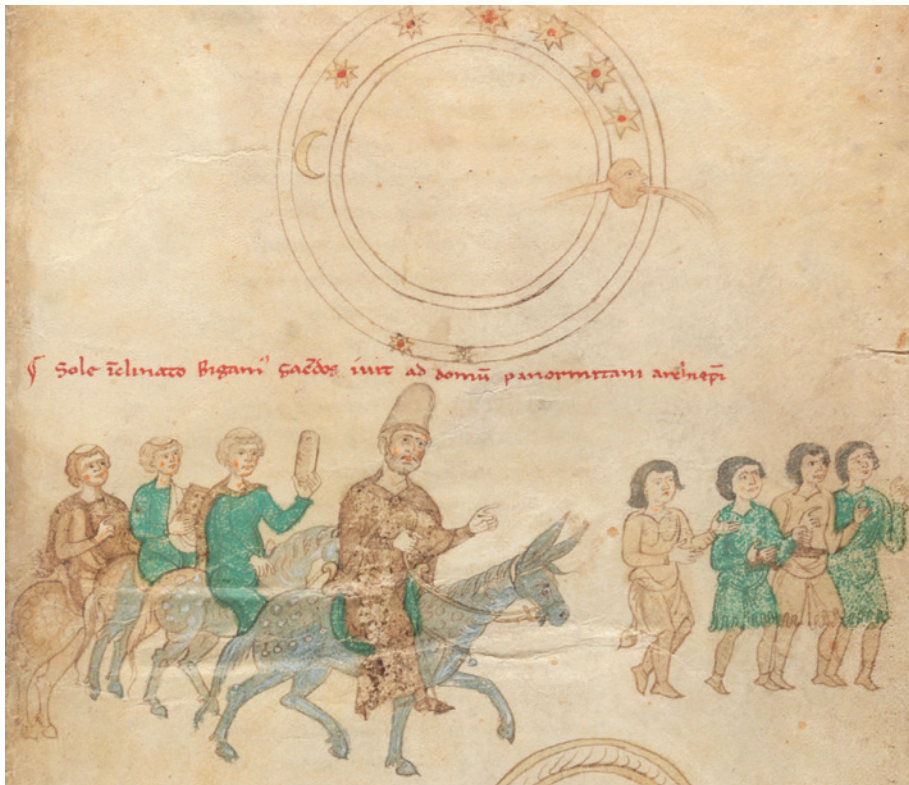 ¶ Sole īclinato Bigamꝰ Sac̄dos iuit ad domū panormitani archiep̄i